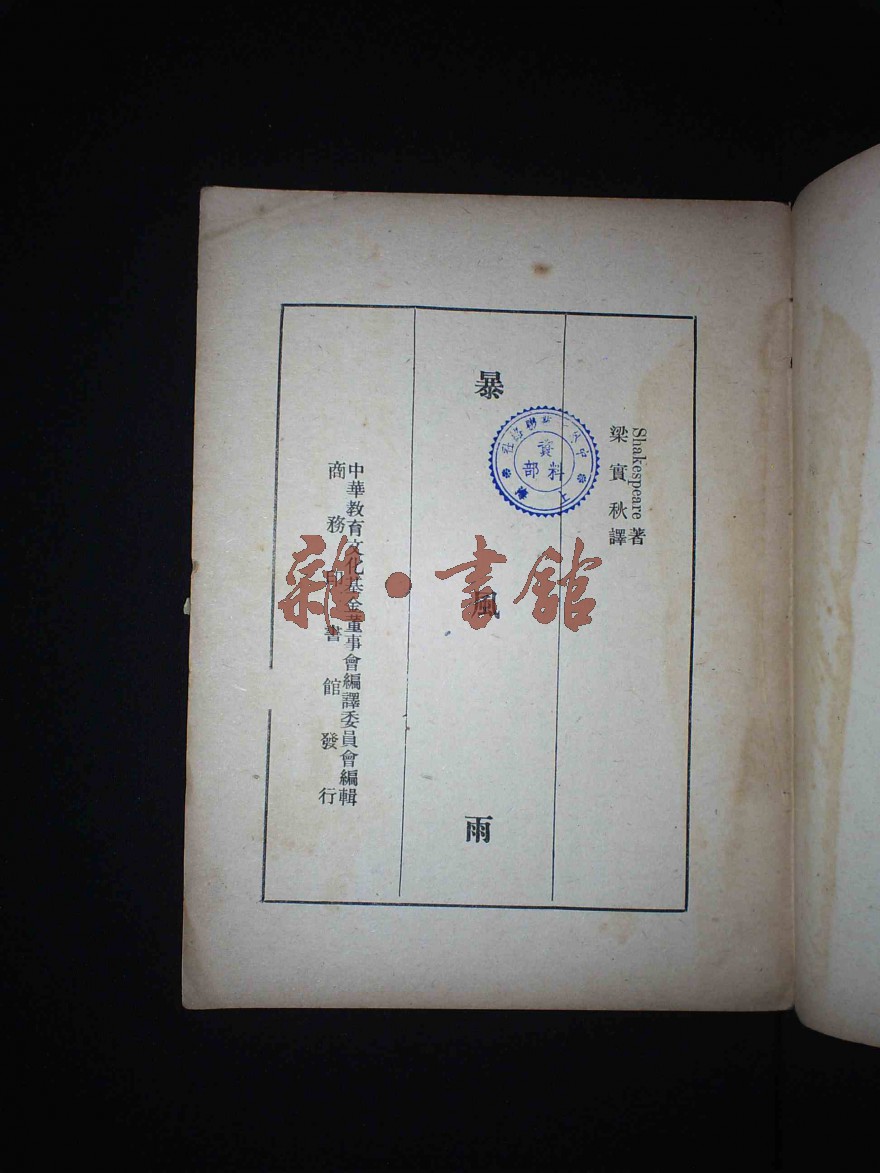 Shakespeare 著
梁實秋譯
暴風雨
中華教育文化基金董事會編譯委員會編輯
商務印書館發行
資料部
雜·書館